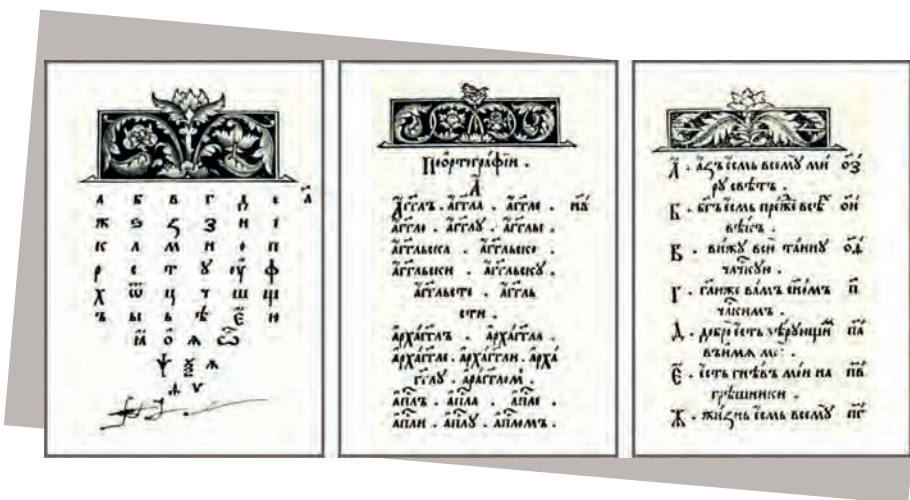 а б в г д е
ж ѕ ꙃ з и і
к л м н о п
р с т ꙋ оу ф
х ѿ ц ч ш щ
ъ ы ь ѣ є ю
ꙗ о ѧ ѽ
ѱ ѯ ѧ
ѫ ѵ
По ортогра́фїи .
А
А҆́г҃глъ . а҆́г҃гла . а҆́г҃гле .
а҆́г҃гло . а҆́г҃глꙋ . а҆́г҃глы .
а҆́г҃гльска . а҆́г҃гльско .
а҆́г҃гльски . а҆́г҃гльскꙋ .
а҆́г҃гльсте . а҆́г҃гль
сти .
а҆рха́г҃глъ . а҆рха́г҃гла .
а҆рха́г҃гле . а҆рха́г҃гли . а҆рха́
г҃глꙋ . а҆ра́г҃глом .
а҆п҃лъ . а҆п҃ла . а҆п҃ле .
а҆п҃ли . а҆п҃лꙋ . а҆п҃ломъ .
А . а҆́зъ є҆́смь всемꙋ̀ ми́ о҆з̾
рꙋ свѣ́тъ .
Б . б҃гъ є҆́смь пре́же всѣ́х
вѣ́къ .
В . ви́жꙋ всю̀ та́инꙋ ѻ҆д
чл҃чкꙋю .
Г . г҃лю же ва́мъ сн҃омъ п
чл҃кимъ .
Д . добро̀ є҆́сть вѣ́рꙋющи̑м па
въ и́мѧ мо .
Є . є҆́сть гнѣ́въ мо́й на пв
грѣ́шники .
Ж . жи́знь є҆́смь всемꙋ̀